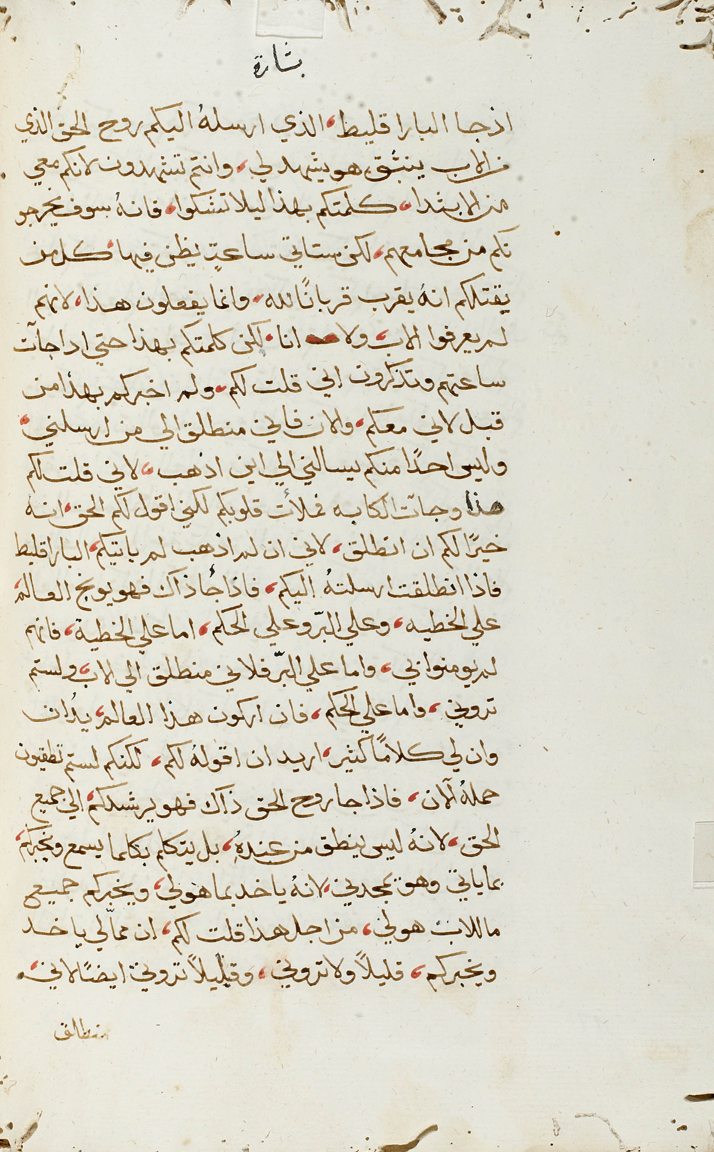 بشارة
اذ جا البارا قليط، الذي ارسله اليكم روح الحق الذي
من الاب ينبثق، هو يشهد لي، وانتم تشهدون لانكم معي
من الابتدا، كلمتكم بهذا ليلا تشكوا، فانهُ سوف يخرجو
نكم من مجامعهم، لكن ستاتي ساعةٍ يظن فيها كل من
يقتلكم انهُ يقرب قربانًا لله، وانما يفعلون هذا، لانهم
لم يعرفوا الاب، ولا انا، لكن كلمتكم بهذا حتي اذا جآت
ساعتهم وتذكرون اني قلت لكم، ولم اخبركم بهذا من
قبل لاني معكم، والان فاني منطلق الي من ارسلني،
وليس احدًا منكم يسالني الي اين اذهب، لاني قلت لكم
هذا وجات الكابه فملأت قلوبكم لكني اقول لكم الحق، انه
خيرًا لكم ان انطلق، لاني ان لم اذهب لم ياتيكم، البارا قليط
فاذا انطلقت ارسلتهُ اليكم، فاذا جُا ذاك فهو يوبخ العالم،
علي الخطيه، وعلي البرّ وعلي الحكم، اما علي الخطية، فانهم
لم يومنوا بي، واما علي البرّ فلاني منطلق الي الاب، ولستم
تروني، واما علي الحكم، فان اركون هذا العالم، يُدان
وان لي كلامًا كثير، اريد ان اقولهُ لكم، لكنكم لستم تطيقون
حملهُ الآن، فاذا جا روح الحق ذاك فهو يرشدكم، الي جميع
الحق، لانهُ ليس ينطق من عندهِ، بل يتكلم بكلما يسمع ويخبركم،
بما ياتي وهو يمجدني، لانهُ ياخد بما هو لي، ويخبركم جميع
ما للاب هو لي، من اجل هذا قلت لكم، ان مما لي ياخد
ويخبركم، قليلاً ولا تروني، وقليلاً تروني ايضًا لاني،
منطلق